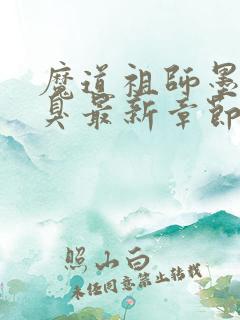 魔道祖师墨
臭最新章节
照山白
未经同意禁止转载